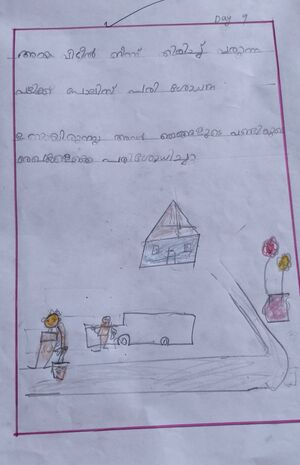 Day 9
അമ്മ വീട്ടിൽ നിന്ന് തിരിച്ച് വരുന്ന
വഴിക്ക് പോലീസ് പരി ശോധന
ഉണ്ടായിരുന്നു അവർ ഞങ്ങളുടെ വണ്ടിയുടെ
രേഖകളൊക്കെ പരിശോധിച്ചു